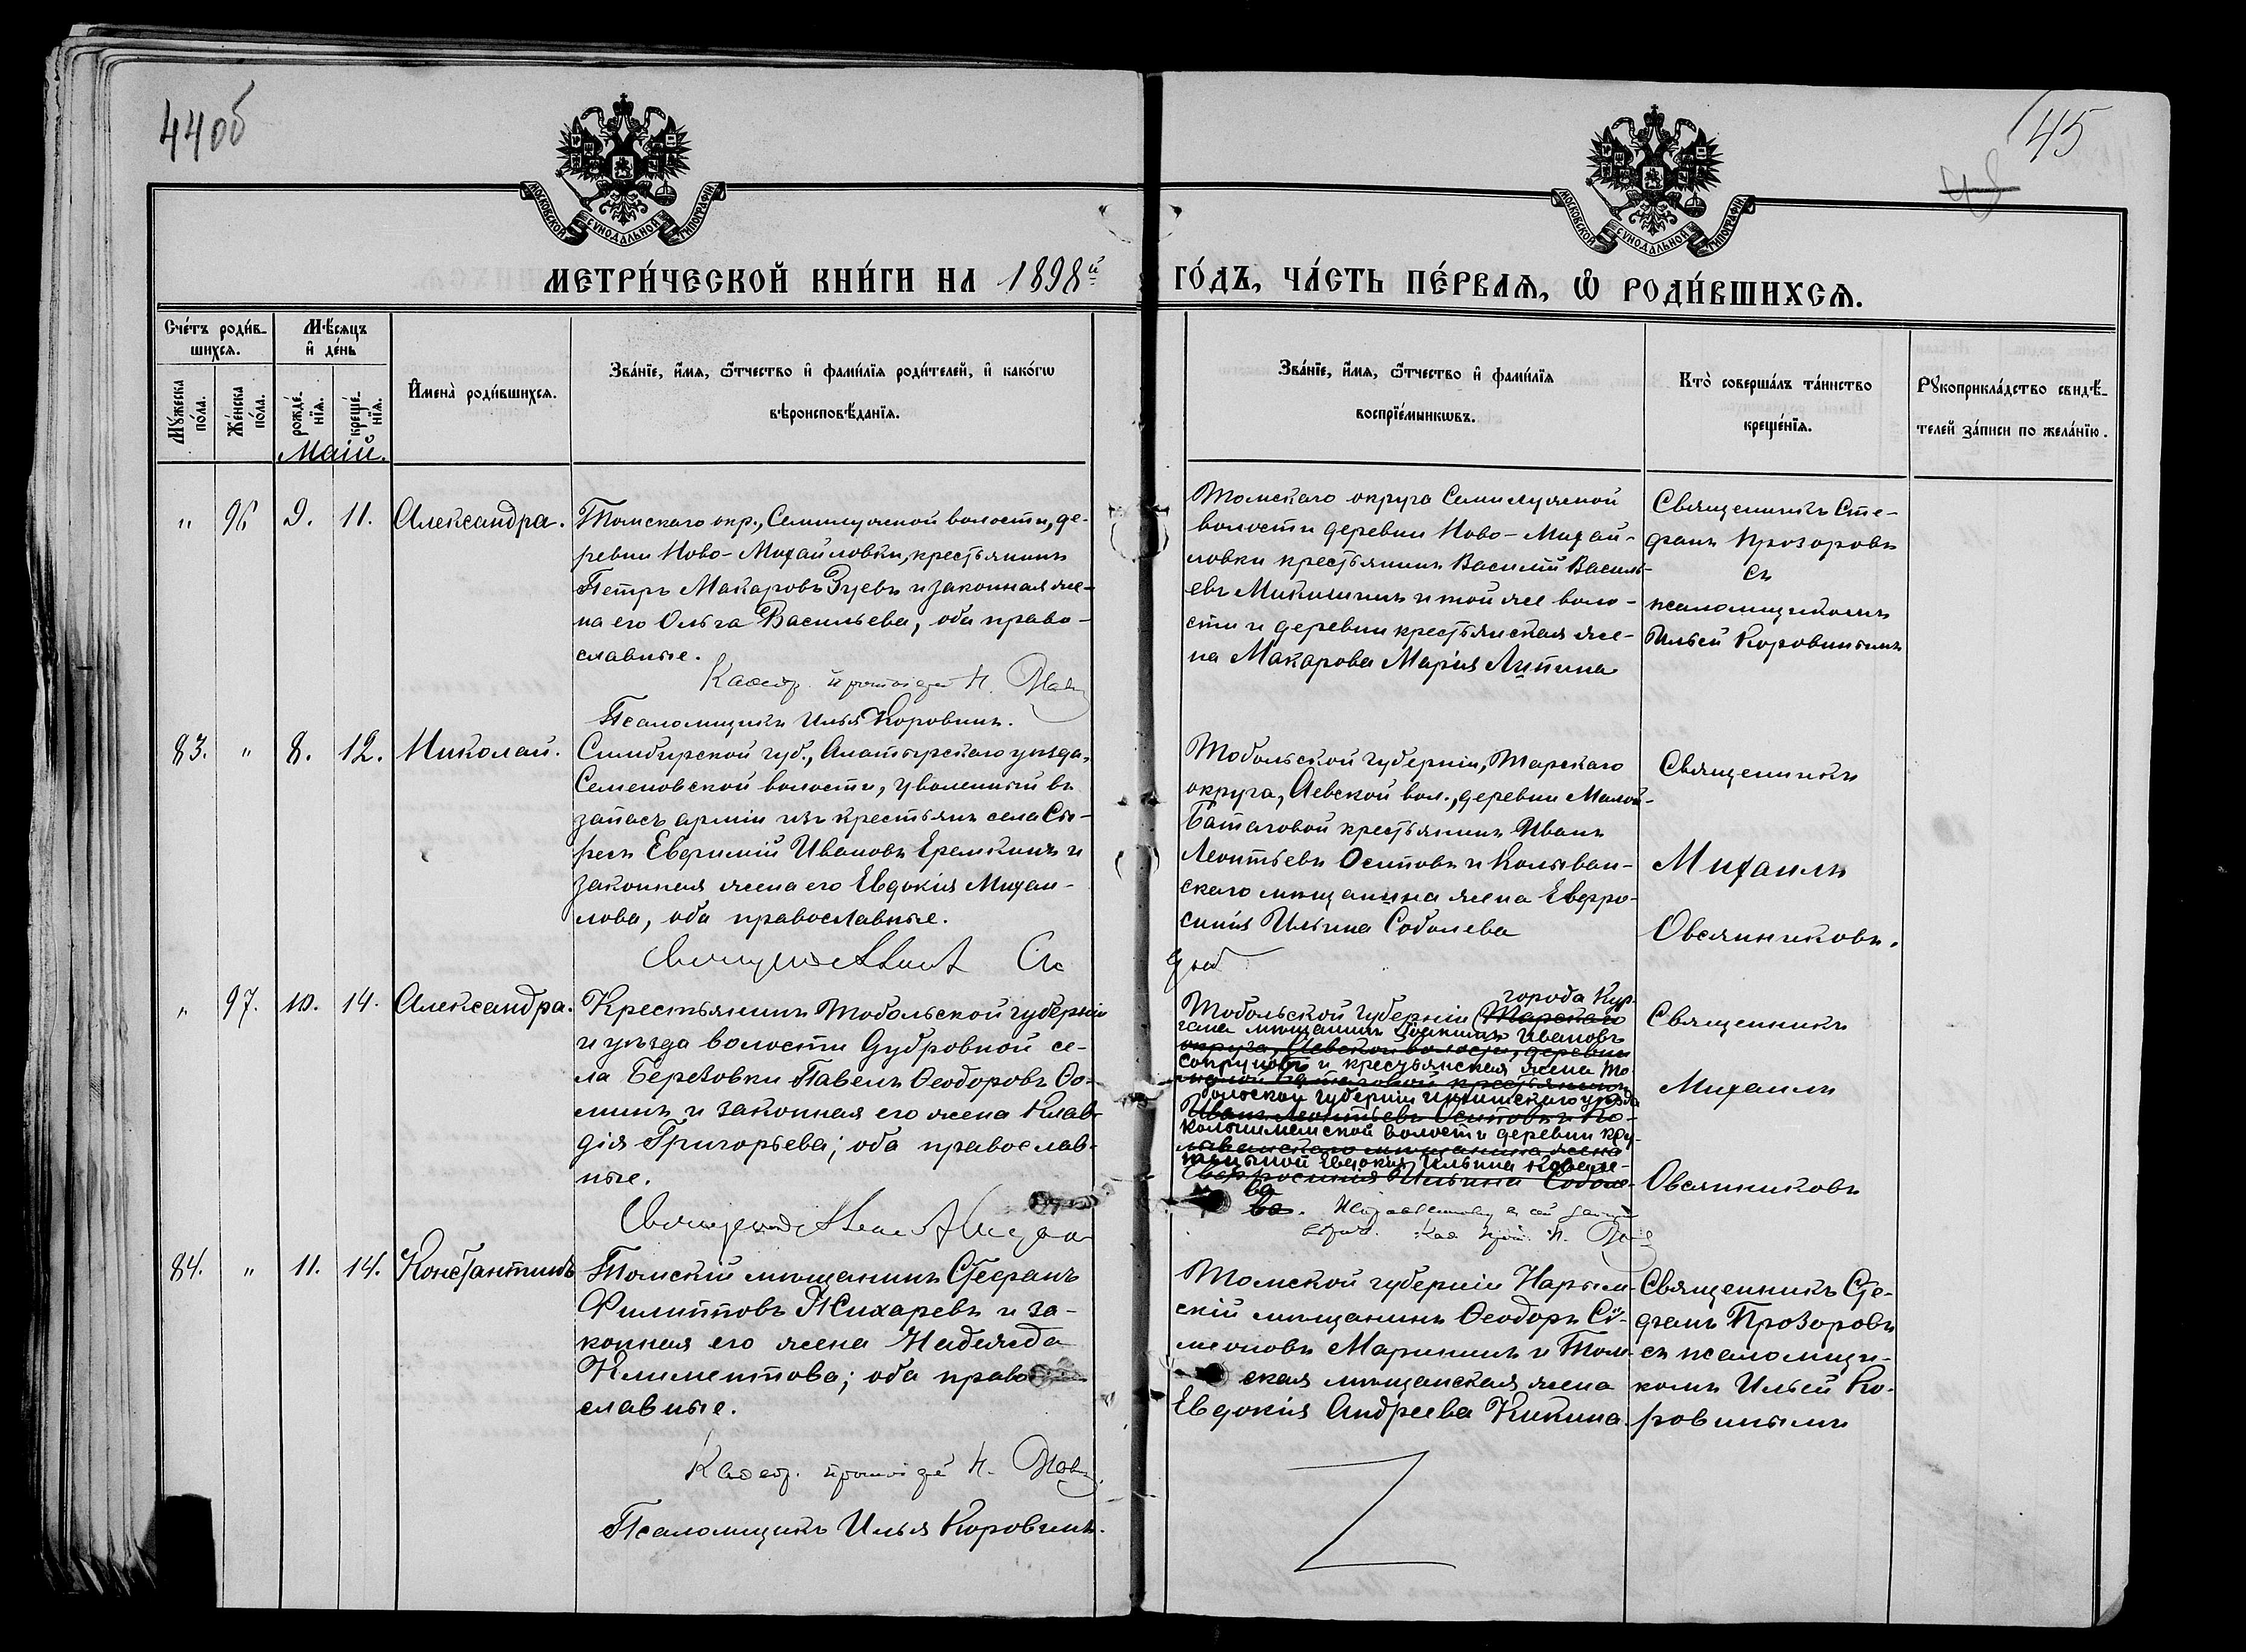 44об
45
МОСКОВСКОЙ СѴНОДАЛЬНОЙ ТИПОГРАФІИ
МОСКОВСКОЙ СѴНОДАЛЬНОЙ ТИПОГРАФІИ
МЕТРИ́ЧЕСКОЙ КНИ́ГИ НА 1898й ГО́ДЪ, ЧА́СТЬ ПЕ́РВАѦ, Ѽ РОДИ́ВШИХСѦ.
Сче́тъ роди́в-
шихсѧ.
Мꙋ́жеска по́ла.
Же́нска по́ла.
Мѣ́сѧцъ
и҆ де́нь
рожде́нїѧ.
креще́нїѧ.
Маій.
И҆мена̀ роди́вшихсѧ.
Зва́нїе, и҆́мѧ, ѻ҆́тчество и҆ фами́лїѧ роди́телей, и҆ како́гѡ
вѣроисповѣ́данїѧ.
Зва́нїе, и҆́мѧ, ѻ҆́тчество и҆ фами́лїѧ
воспрїе́мникѡвъ.
Кто̀ соверша́лъ та́инство
креще́нїѧ.
Рꙋкоприкла́дство свидѣ́-
телей за́писи по жела́нїю.
" 96 9. 11. Александра.
Томскаго окр., Семилужной волости, де-
ревни Ново-Михайловки, крестьянинъ
Петръ Макаровъ Зуевъ и законная же-
на его Ольга Васильева, оба право-
славные.
Каѳедр. протоіерей Н.
Псаломщикъ Илья Коровинъ.
Томскаго округа Семилужной
волости деревни Ново-Михай-
ловки крестьянинъ Василій Василь-
евъ Микишинъ и той же воло-
сти и деревни крестьянская же-
на Макарова Марія Липина
Священникъ Сте-
фанъ Прозоровъ
съ
псаломщикомъ
Ильей Коровинымъ
83. " 8. 12. Николай.
Симбирской губ., Алатырскаго уѣзда,
Семеновской волости, уволенный въ
запасъ арміи изъ крестьянъ села Сы-
ресь Евфимій Ивановъ Еремкинъ и
законная жена его Евдокія Михай-
лова, оба православные.
Тобольской губерніи, Тарскаго
округа, Аевской вол., деревни Малой-
Баталовой крестьянинъ Иванъ
Леонтьевъ Осиповъ и Колыван-
скаго мѣщанина жена Евфро-
синія Ильина Соболева
Священникъ
Михаилъ
Овсянниковъ.
" 97. 10. 14. Александра.
Крестьянинъ Тобольской губерніи
и уѣзда волости Дубровной се-
ла Березовки Павелъ Ѳеодоровъ Ѳо-
минъ и законная его жена Клав-
дія Григорьева; оба православ-
ные.
Тобольской губерніи Тарскаго города Кур-
гана мѣщанинъ Іоакимъ Ивановъ
округа, Аевской волости, деревни
Сопруновъ и крестьянская жена То-
малой Баталовой крестьянинъ
больской губерніи Ишимскаго уѣзда
Иванъ Леонтьевъ Осиповъ и Ко-
волости деревни Кру-
лыванскаго мѣщанина жена
Евдокія Ильина
Евфросинія Ильина Соболе-
ва
ва.
Священникъ
Михаилъ
Овсянниковъ
84. " 11. 14. Константинъ
Томскій мѣщанинъ Стефанъ
Филипповъ Жихаревъ и за-
конная его жена Надежда
Климентова; оба право
славные.
Каѳедр. протоіерей Н.
Псаломщикъ Илья Коровинъ.
Томской губерніи Нарым-
скій мѣщанинъ Ѳеодоръ Си-
меоновъ Марининъ и Том-
ская мѣщанская жена
Евдокія Андреева Кикина.
Священникъ Сте-
фанъ Прозоровъ
съ псаломщи-
комъ Ильей Ко-
ровинымъ